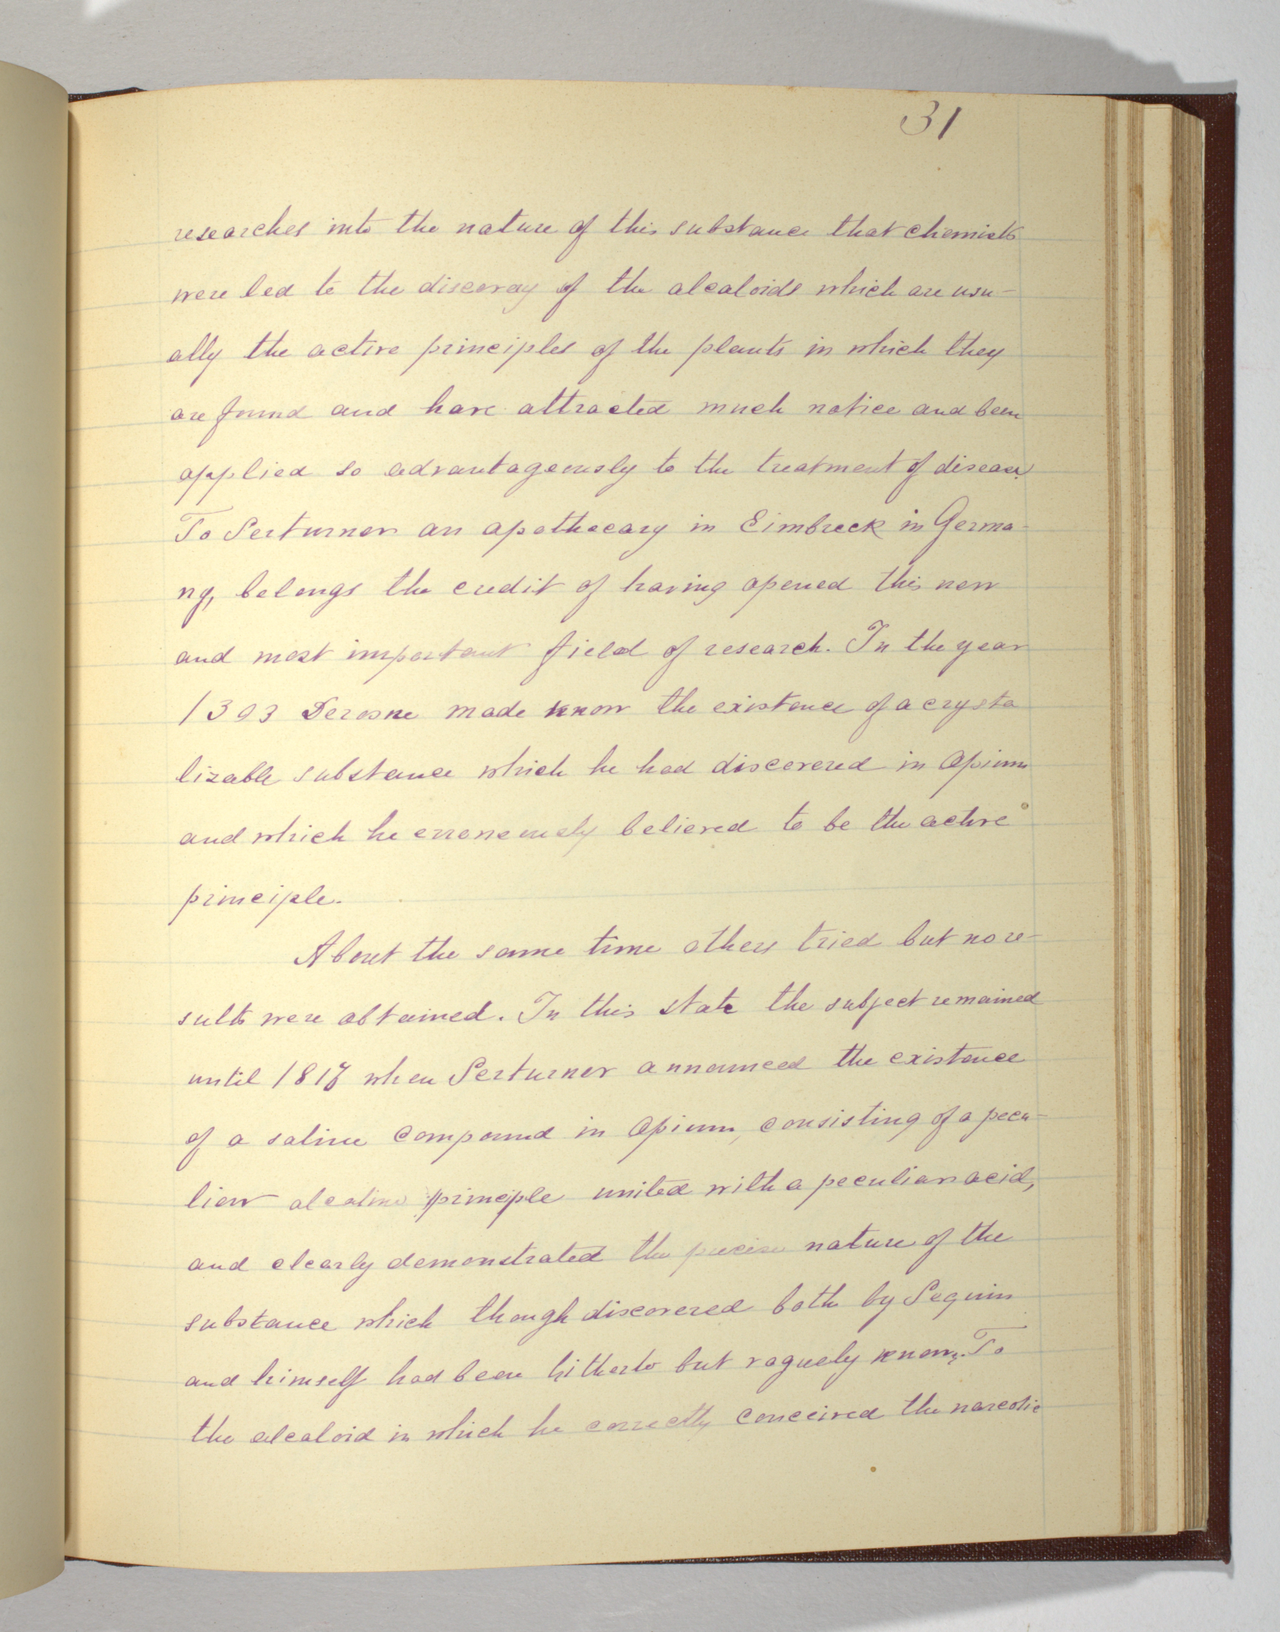 31
researches into the nature of this substance that chemists
were led to the discovay of the alcaloids which are usu-
ally the active principles of the plants in which they
are found and have attracted much notice and been
applied so advantageously to the treatment of disease.
To Serturner an apothecary in Eimbreck in Germa-
ny, belongs the credit of having opened this new
and most important field of research. In the year
1303 Derosne made know the existence of a crysta
lizable substance which he had discovered in Opium
and which he erroneously believed to be the active
principle.
About the same time others tried but no re-
sults were obtained. In this state the subject remained
until 1817 when Serturner announced the existence
of a saline compound in Opium, consisting of a pecu-
liar alcaline principle united with a peculiar acid,
and clearly demonstrated the precise nature of the
substance which though discovered both by Seguin
and himself had been hitherto but vaguely known. To
the alcaloid in which he correctly conceived the narcotic